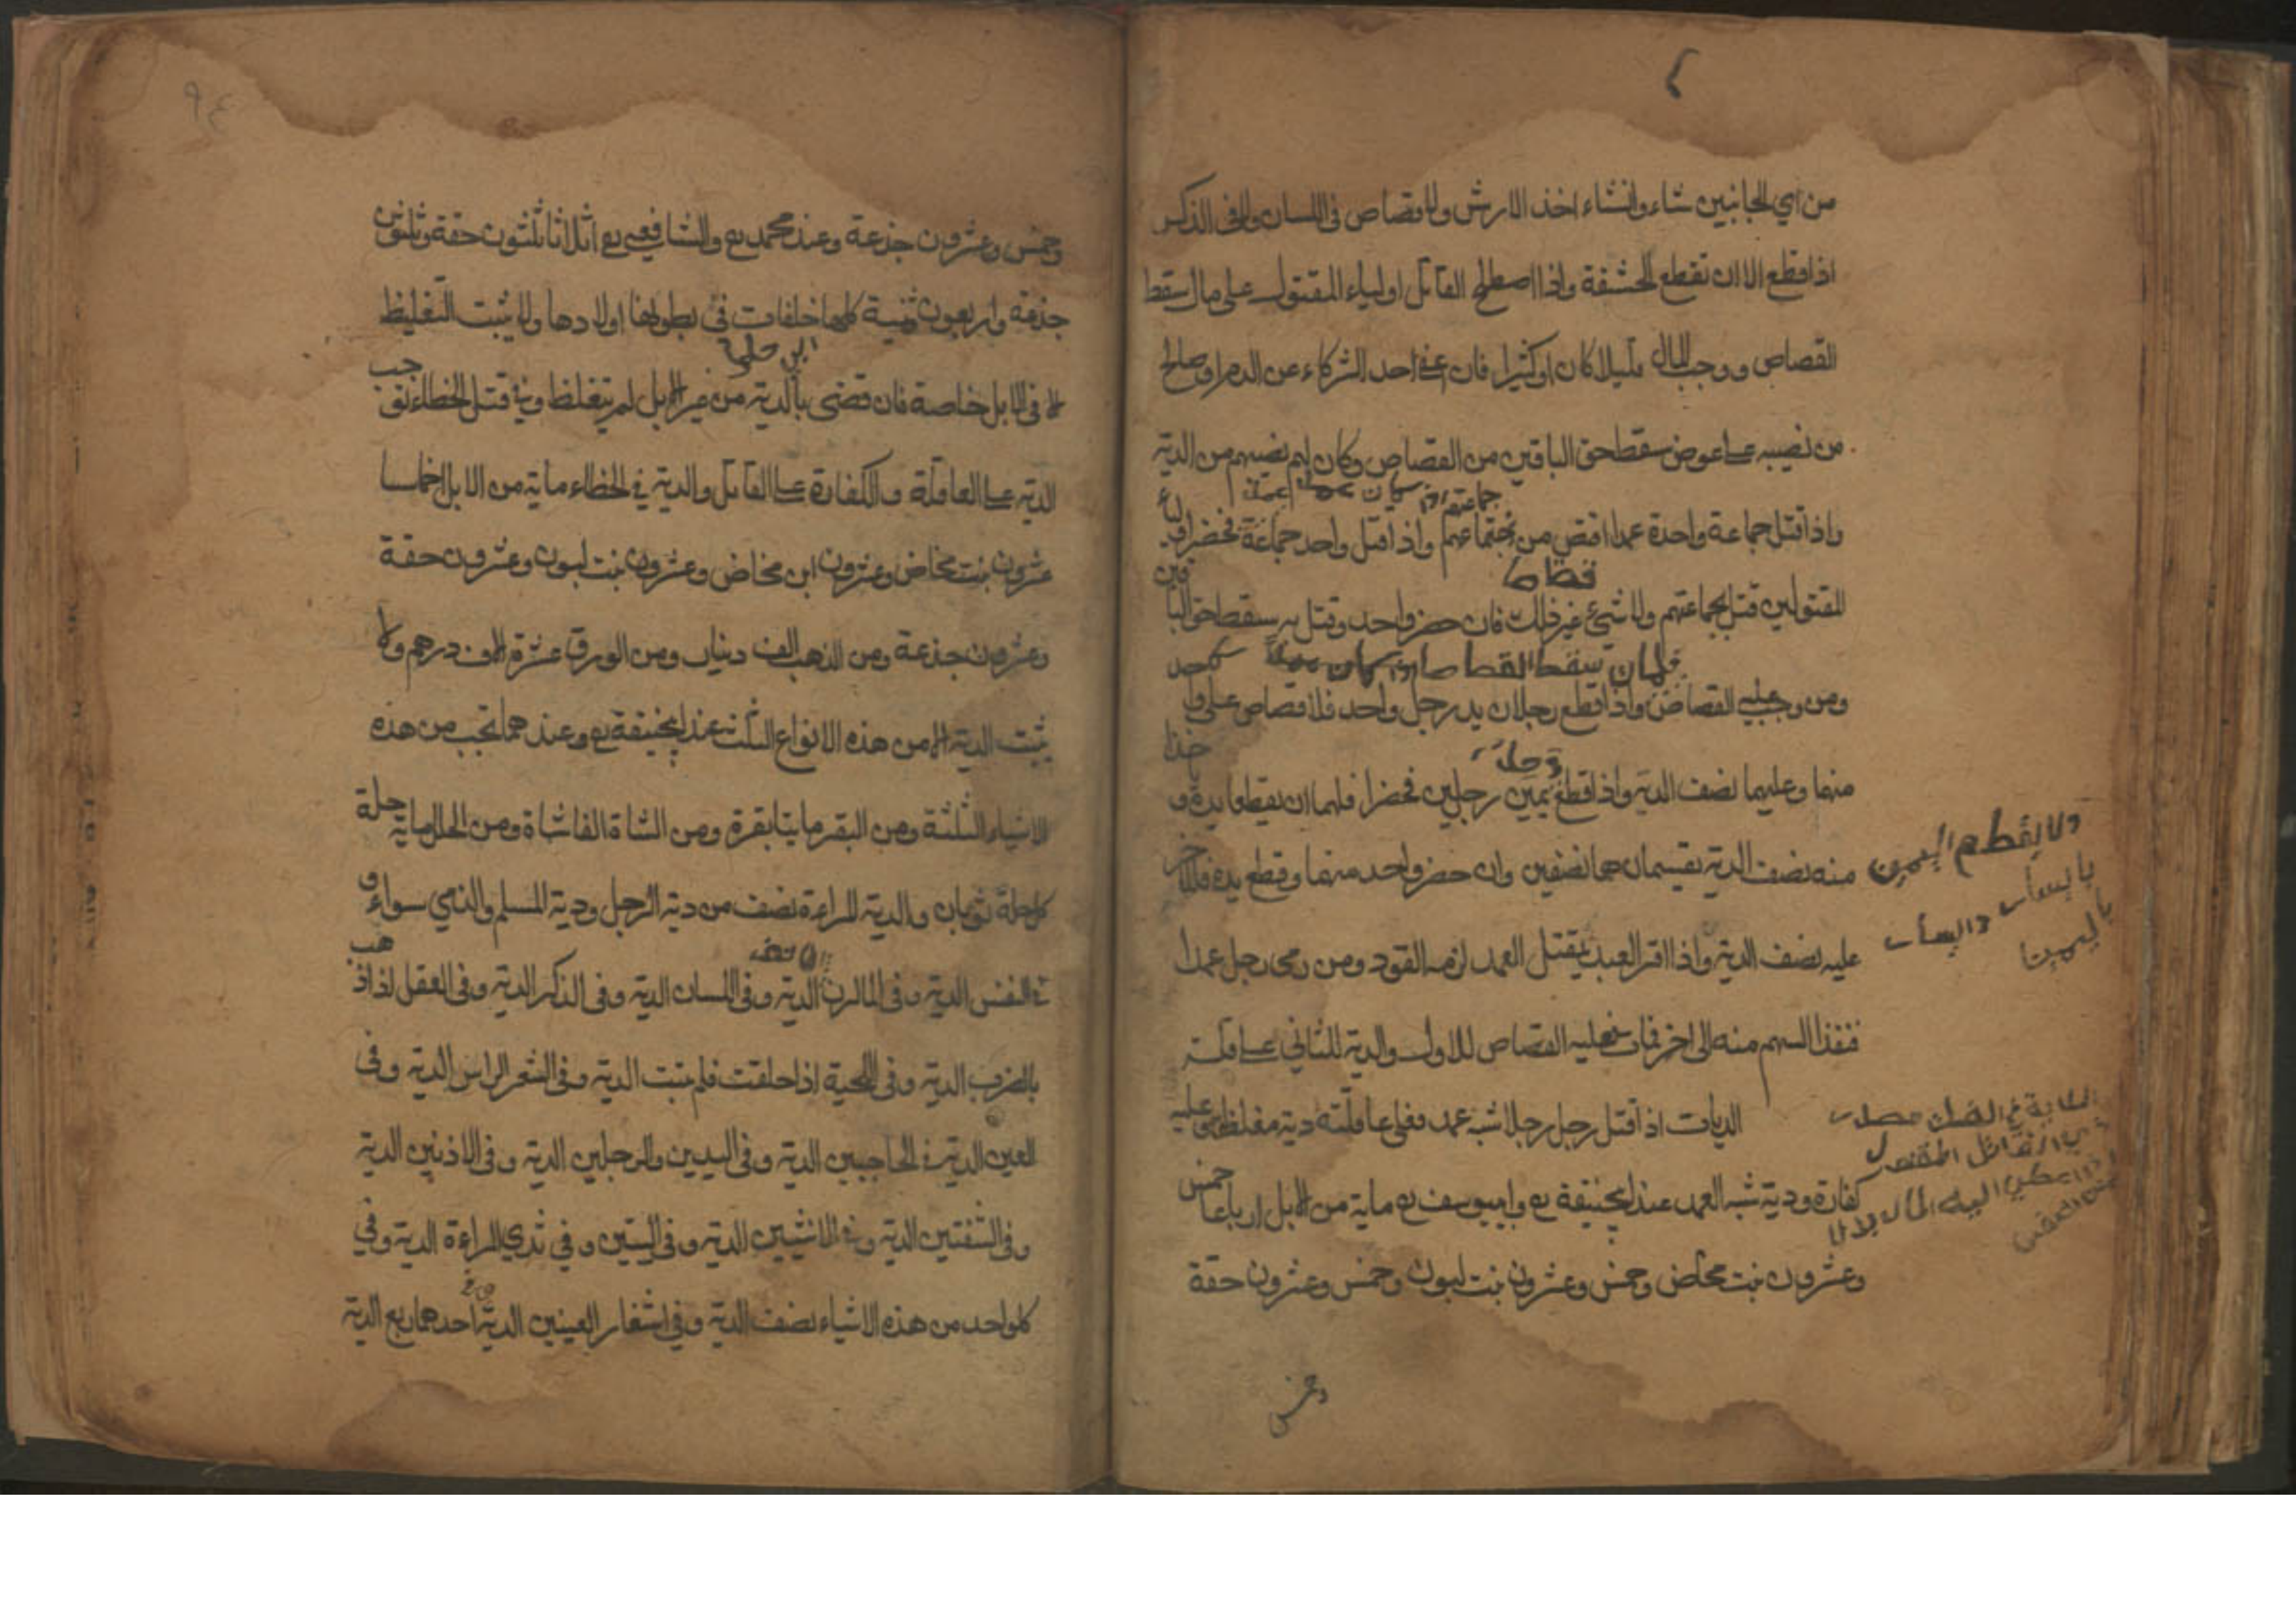 من اي الجانبين شاء وانشاء اخذ الارش ولا قصاص في اللسان ولا في الذكر
اذا قطع الا ان تقطع الحشفة واذا اصطلح القاتل اولياء المقتول على مال سقط
القصاص ووجب المال قليلا كان او كثيرا فان عفى احد الشركاء عن الدم او صالح
من نصيبه على عوض سقط حق الباقين من القصاص وكان لهم نصيبهم من الدية
واذا قتل جماعة واحدة عمدا اقتص من جماعتهم واذا قتل واحد جماعة فحضر اوليا
المقتولين قتل بجماعتهم ولا شيء غير ذلك فان حضر واحد وقتل به سقط حق الباقين
ومن وجب عليه القصاص واذا قطع رجلان يد رجل واحد فلا قصاص على واحد
منهما وعليهما نصف الدية واذا قطع يمين رجلين فحضرا فلهما ان يقطعا يده و
منه نصف الدية يقسمان هما نصفين وان حضر واحد منهما وقطع يده فللاخر
عليه نصف الدية واذا اقر العبد بقتل العمد لزمه القود ومن رمى رجل عمدا
فنفذ السهم منه الى اخر فمات فعليه القصاص للاول والدية للثاني على عاقلته
الديات اذا قتل رجل رجلا شبه عمد فعلى عاقلته دية مغلظة وعليه
كفارة ودية شبه العمد عند ابي حنيفة رح وابي يوسف رح ماية من الابل ارباعا خمس
وعشرون بنت مخاض وخمس وعشرون بنت لبون وخمس وعشرون حقة
ولا يقطع اليمين
باليسار واليسار
باليمين
وخمس
٩٤
وخمس وعشرون جذعة وعند محمد رح والشافعي رح اثلاثا ثلثون حقة وثلثون
جذعة واربعون ثنية كلها خلفات في بطونها اولادها ولا يثبت التغليظ
الا في الابل خاصة فان قضى بالدية من غير الابل لم يتغلظ وفي قتل الخطاء تجب
الدية على العاقلة والكفارة على القاتل والدية في الخطاء ماية من الابل اخماسا
عشرون بنت مخاض وعشرون ابن مخاض وعشرون بنت لبون وعشرون حقة
وعشرون جذعة ومن الذهب الف دينار ومن الورق عشرة الاف درهم ولا
يثبت الدية الا من هذه الانواع الثلث عند ابي حنيفة رح وعندهما تجب من هذه
الاشياء الثلثة ومن البقر مايتا بقرة ومن الشاة الفا شاة ومن الحلل ماية حلة
كل حلة ثوبان والدية المراءة نصف من دية الرجل ودية المسلم والذمي سواء و
في النفس الدية وفي المارن الدية وفي اللسان الدية وفي الذكر الدية وفي العقل اذا ذهب
بالضرب الدية وفي اللحية اذا حلقت فلم ينبت الدية وفي الشعر الراس الدية وفي
العين الدية في الحاجبين الدية وفي اليدين والرجلين الدية وفي الاذنين الدية
وفي الشفتين الدية وفي الانثيين الدية وفي اليتين وفي ثدي المراءة الدية وفي
كل واحد من هذه الاشياء نصف الدية وفي اشفار العينين الدية احدهما ربع الدية